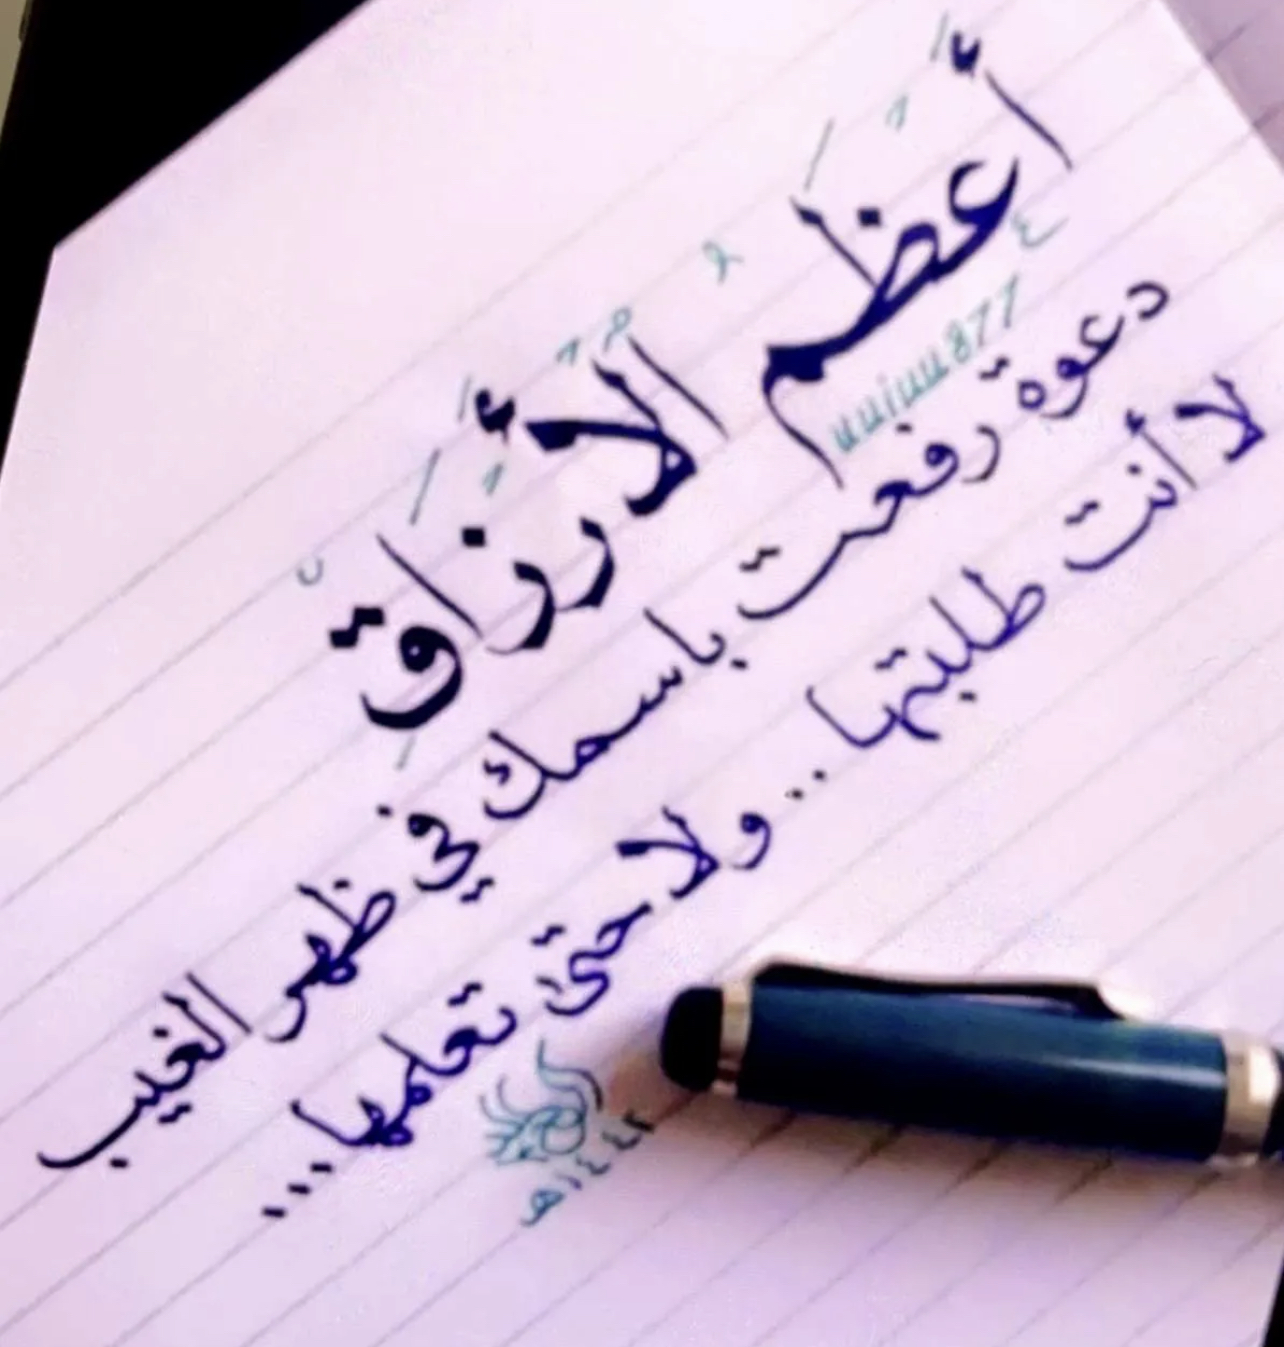 أعظم الأرزاق
uuiuu877
دعوة رفعت باسمك في ظهر الغيب
لا أنت طلبتها .. ولا حتىٰ تعلمها ...
١٤٤٢هـ